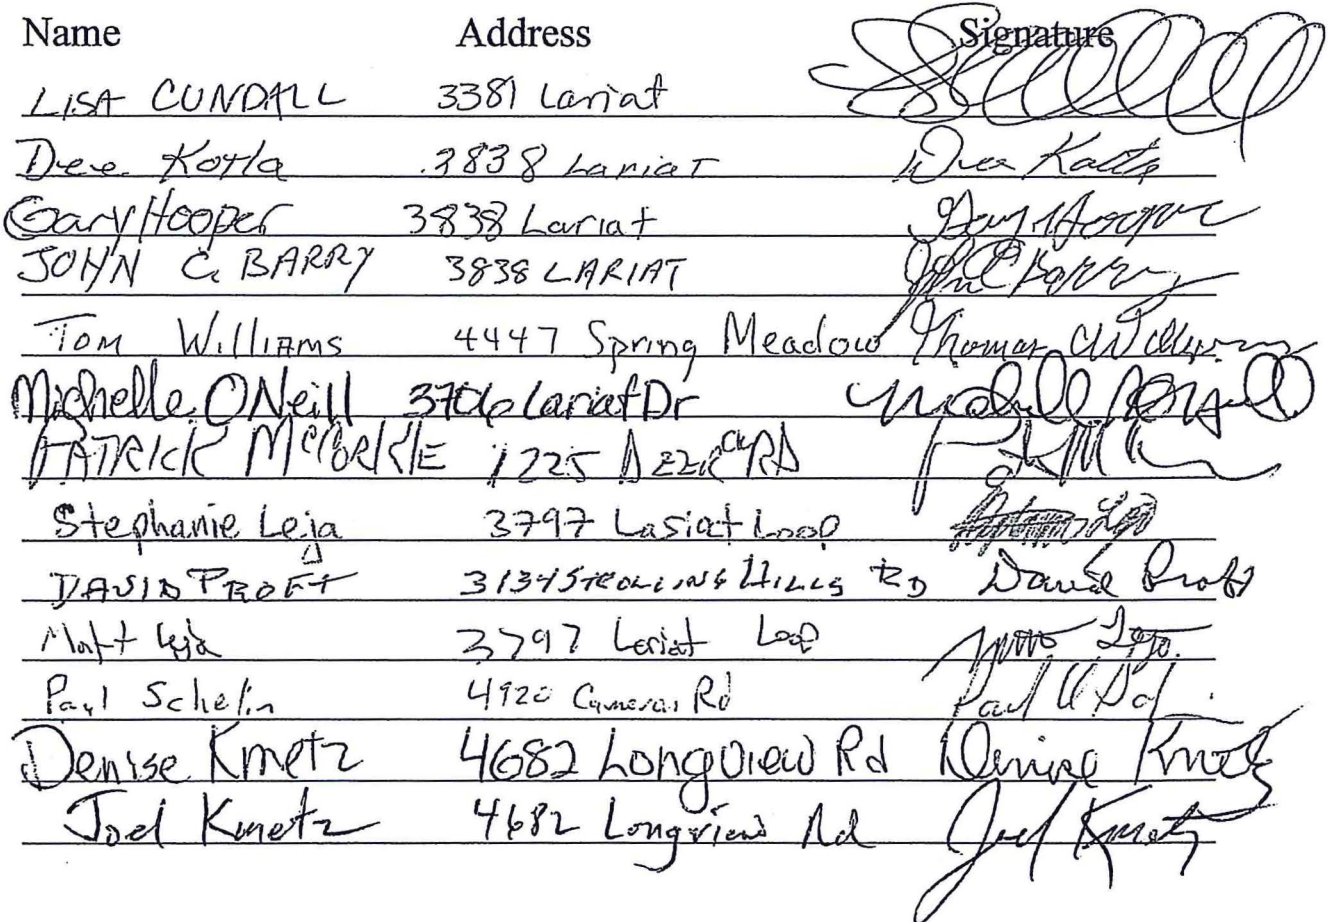 Name Address Signature
LISA CUNDALL 3381 Lariat
Dee Kotla 3838 Lariat Dee Kotla
Gary Hooper 3838 Lariat Gary Hooper
JOHN C. BARRY 3838 LARIAT John C Barry
Tom Williams 4447 Spring Meadow Thomas C Williams
Michelle ONeill 3706 Lariat Dr Michelle ONeill
PATRICK McCORKLE 1225 DEER CK RD
Stephanie Leja 3797 Lariat Loop
DAVID PROFT 3134 STROLLING HILLS RD David Proft
Matt Leja 3797 Lariat Loop Matt Leja
Paul Schelin 4920 Rd Paul
Denise Kmetz 4682 Longview Rd Denise Kmetz
Joel Kmetz 4682 Longview Rd Joel Kmetz